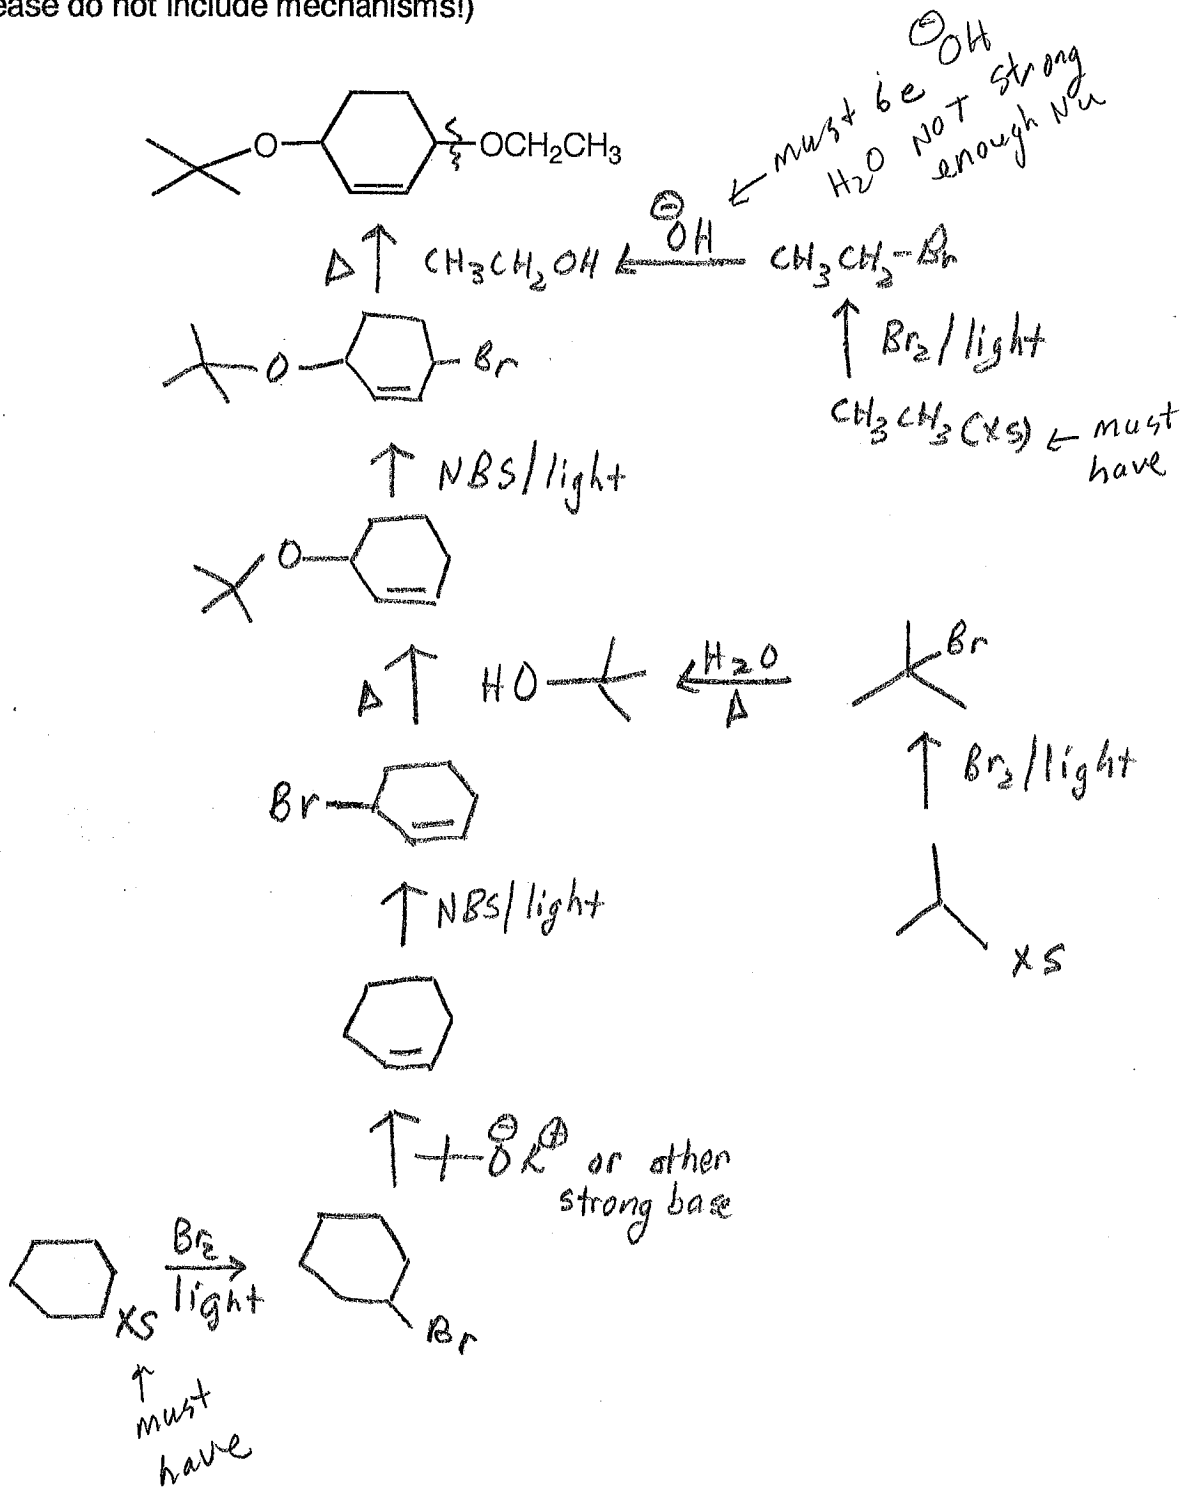 ease do not include mechanisms!)
⊖OH
must be
H2O NOT strong
enough Nu
O
OCH2CH3
Δ
CH3CH2OH
⊖OH
CH3CH2-Br
Br2/light
CH3CH3(XS)
must
have
O
Br
NBS/light
O
Δ
HO
H2O
Δ
Br
Br2/light
XS
Br
NBS/light
⊖O K⊕ or other
strong base
Br2
light
XS
Br
must
have